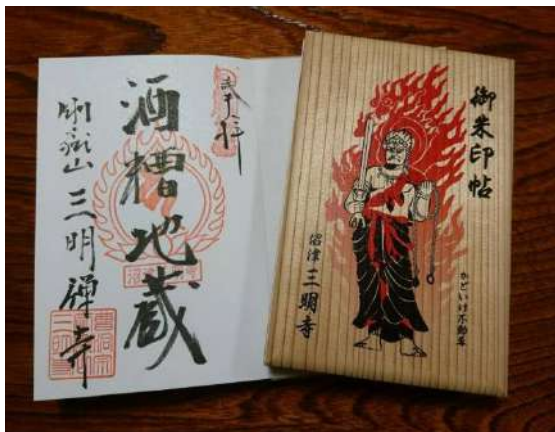 奉拝
酒糟地蔵
三明禅寺
御朱印帖
沼津 三明寺
かどいけ不動尊